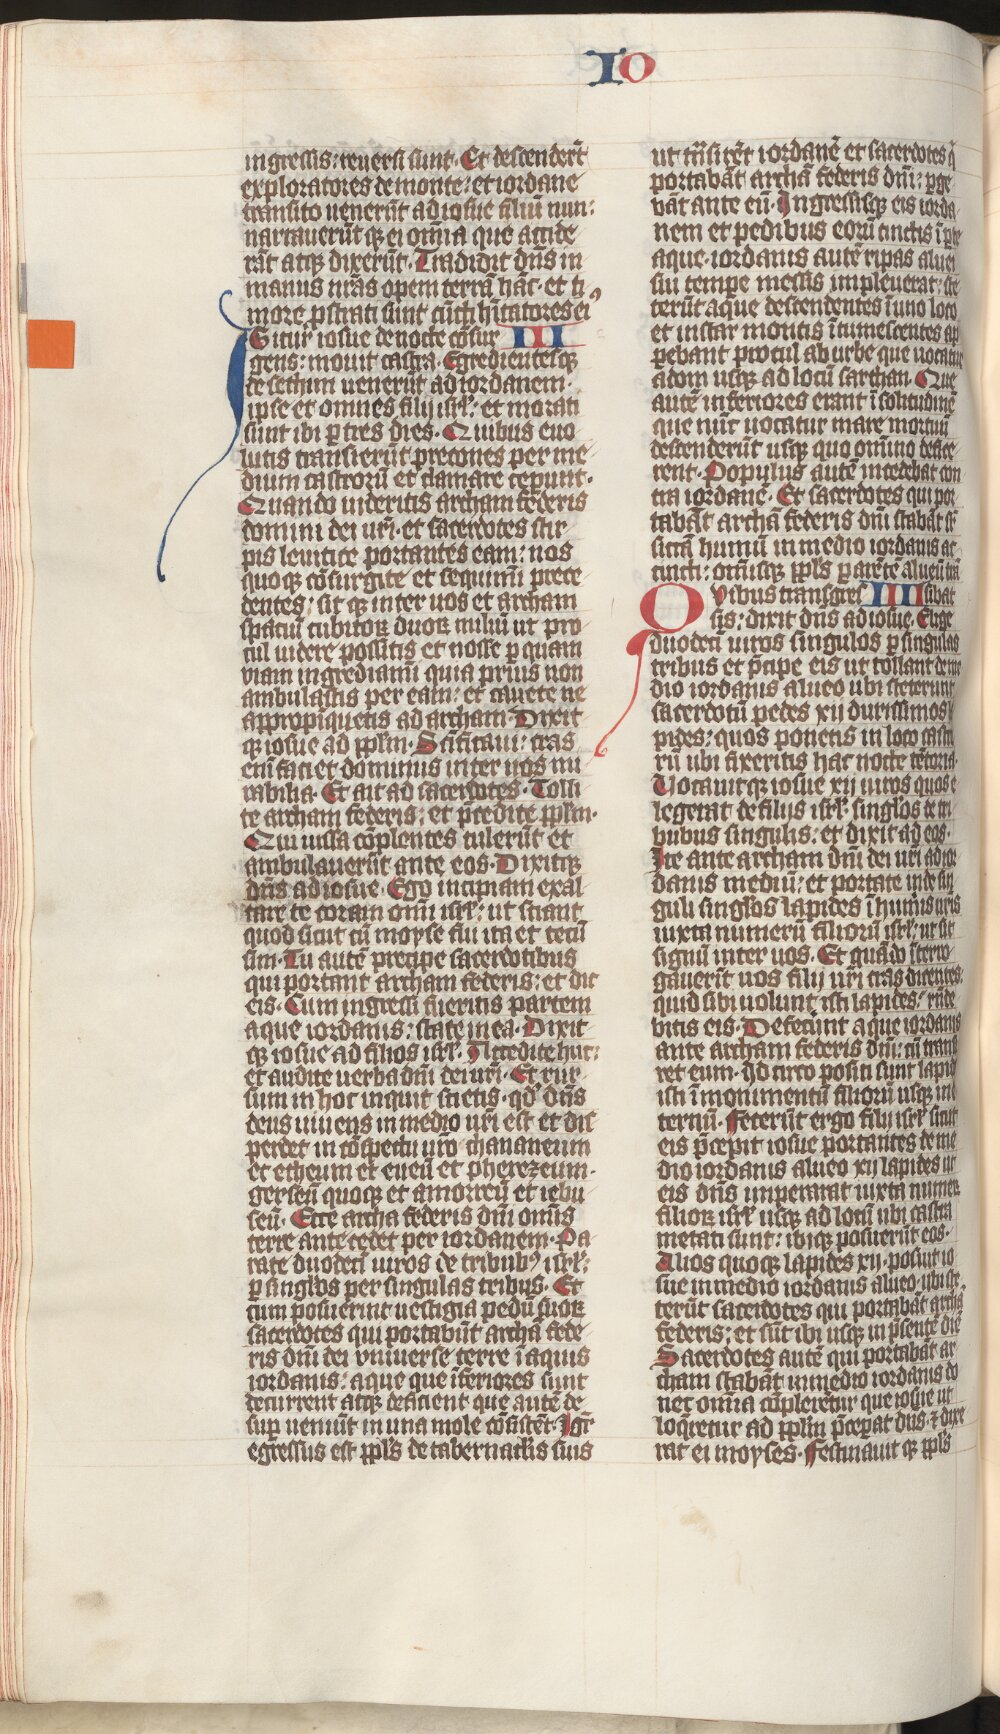 IO
ingressis: reuersi sunt. Et descenderūt
exploratores de monte: et iordane
transito uenerūt ad iosue filiū nun:
narrauerūt qƺ ei omīa que accide
rāt atqƺ dixerūt. Tradidit dn̄s in
manus nr̄as opem terrā hāc. et ti
more ꝓstrati sunt cūcti hītatores eiꝰ
Igitur iosue de nocte cōsur III
gens: mouit castra. Egredientesqƺ
de sethim uenerūt ad iordanem.
ipse et omnes filij isrl̄: et morati
sunt ibi ꝑ tres dies. Quibus euo
lutis transierūt precones per me
dium castrorū et clamare ceperunt.
Quando uideritis archam federis
domini dei urī. et sacerdotes stir
pis leuitice portantes eam: uos
quoqƺ cōsurgite et sequimī prece
dentes: sit qƺ inter uos et archam
spaciū cubitoꝝ duoꝝ miliū ut pro
cul uidere possitis et nosse ꝑ quam
uiam ingrediamī quia prius non
ambulastis per eam: et cauete ne
appropīquetis ad archam. Dixit
qƺ iosue ad ppl̄m. Scīficamī: cras
enī faciet dominus inter uos mi
rabilia. Et ait ad sacerdotes. Tolli
te archam federis: et p̄cedite ppl̄m.
Qui iussa cōplentes tulerūt et
ambulauerūt ante eos. Dixitqƺ
dn̄s ad iosue. Ego incipiam exal
tare te coram omī isrl̄: ut sciant
quod sicut cū moyse fui ita et tecū
sim. Tu autē precipe sacerdotibus
qui portant archam federis: et dic
eis. Cum ingressi fueritis partem
aque iordanis: state in ea. Dixit
qƺ iosue ad filios isrl̄. Accedite huc:
et audite uerba dn̄i dei urī. Et rur
sum in hoc inquit scietis. qd̄ dn̄s
deus uiuens in medio urī est et dis
perdet in cōspectu urō chananeum
et etheum et eueū et pherezeum.
gerseū quoqƺ et amorreū et iebu
seū. Ecce archa federis dn̄i omīs
terre antecedet per iordanem. Pa
rate duodeci uiros de tribubꝰ isrl̄:
ꝑ singl̄os per singulas tribus. Et
cum posuerint uestigia pedū suoꝝ
sacerdotes qui portabūt archā fede
ris dn̄i dei vniuerse terre ī aquis
iordanis: aque que īferiores sunt
decurrent atqƺ deficient que autē de
sup ueniūt in una mole cōsistēt. Igit̄
egressus est ppl̄s de tabernaclīs suis
ut trāsirēt iordanē et sacerdotes q̄
portabāt archā federis dn̄i: ꝑge
bāt ante eū. Ingressisqƺ eis iorda
nem et pedibus eorū tinctis ī ꝑte
aque. iordanis autē ripas aluei
sui tempe messis impleuerat: ste
terūt aque descendentes ī uno loco
et instar montis ītumescentes ap
pebant procul ab urbe que uocatur
adom usqƺ ad locū sarthan. Que
autē inferiores erant ī solitudinē
que nūc uocatur mare mortuū
descenderūt usqƺ quo omīno defice
rent. Populus autē incedebat con
tra iordanē. Et sacerdotes qui por
tabāt archā federis dn̄i stabāt sr̄
siccā humū in medio iordanis ac
cincti: omīsqƺ ppl̄s ꝑ arētē alueū trā
Qvibus transgres IIII sibat
sis: dixit dn̄s ad iosue. Elige
duodeci uiros singulos ꝑ singulas
tribus et p̄cipe eis ut tollant de me
dio iordanis alueo ubi steterunt
sacerdotū pedes xij durissimos la
pides: quos ponetis in loco castro
rū ubi fixeritis hac nocte tētoria.
Vocauitqƺ iosue xij uiros quos e
legerat de filijs isrl̄. singl̄os de tri
bubus singulis: et dixit ad eos.
Ite ante archam dn̄i dei urī ad ior
danis mediū: et portate inde sin
guli singl̄os lapides ī humīs urīs
iuxta numerū filiorū isrl̄: ut sit
signū inter uos. Et quādo īterro
gauerīt uos filij urī cras dicentes.
quid sibi uolunt isti lapides: rn̄de
bitis eis. Defecerūt aque iordanis
ante archam federis dn̄i: cū transi
ret eum. Id circo positi sunt lapid
isti ī monumentū filiorū usqƺ in e
ternū. Fecerūt ergo filij isrl̄ sicut
eis p̄cepit iosue portantes de me
dio iordanis alueo xij lapides ut
eis dn̄s imperarat iuxta numerū
filioꝝ isrl̄ usqƺ ad locū ubi castra
metati sunt: ibiqƺ posuerūt eos.
Alios quoqƺ lapides xij. posuit io
sue in medio iordanis alueo. ubi ste
terūt sacerdotes qui portabāt archā
federis: et sūt ibi usqƺ in p̄sentē diē
Sacerdotes autē qui portabāt ar
cham stabāt in medio iordanis do
nec omīa cōplerētur que iosue ut
loq̄retur ad ppl̄m p̄cepat dn̄s. ⁊ dixe
rat ei moyses. Festinauit qƺ ppl̄s